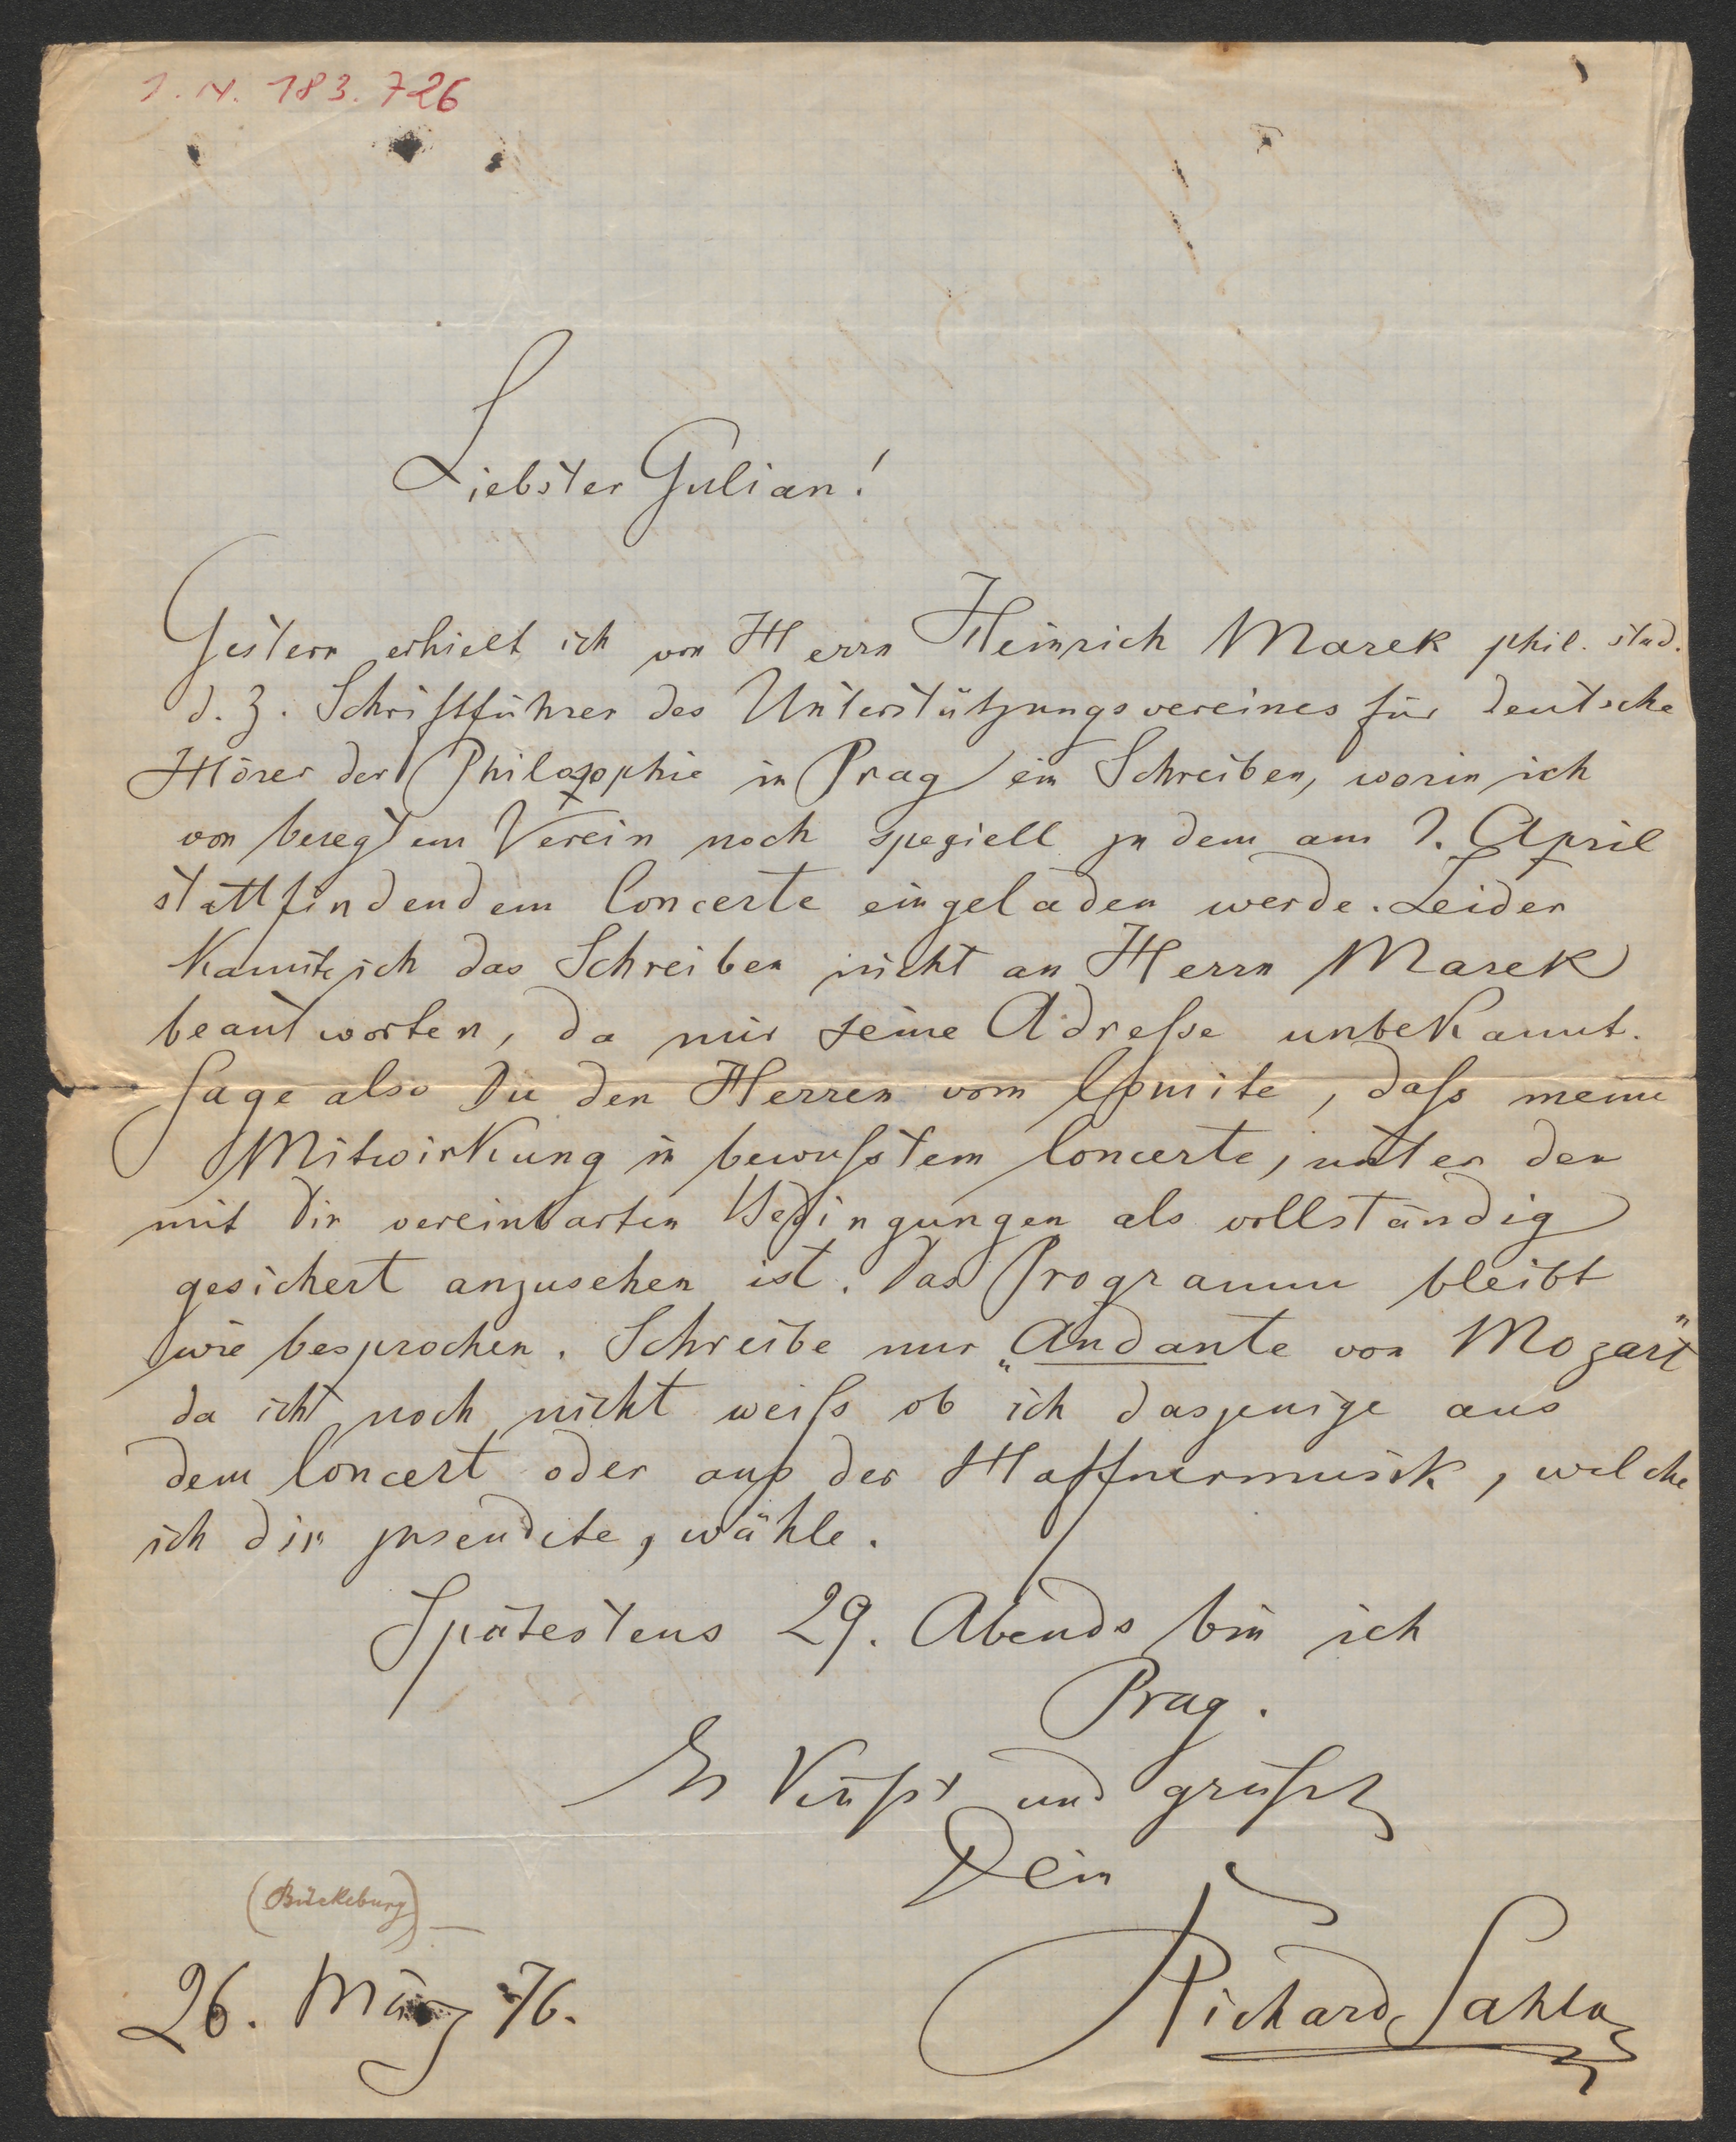 I. N. 183.726
Liebster Gulian!
Gestern erhielt ich von Herrn Heinrich Marek phil. stud.
d. Z. Schriftführer des Unterstützungsvereines für deutsche
Hörer der Philosophie in Prag ein Schreiben, worin ich
von beregtem Verein noch speziell zu dem am 1. April
stattfindendem Concerte eingeladen werde. Leider
kannte ich das Schreiben nicht an Herrn Marek
beantworten, da mir seine Adreße unbekannt.
Sage also Du den Herren vom Comite, daß meine
Mitwirkung in bewußtem Concerte, unter den
mit Dir vereinbarten Bedingungen als vollständig
gesichert anzusehen ist. Das Programm bleibt
wie besprochen. Schreibe nur „Andante von Mozart"
da ich noch nicht weiß ob ich dasjenige aus
dem Concert oder aus der Haffnermusik, welche
ich dir zusendete, wähle.
Spätestens 29. Abends bin ich
Prag.
Es küßt und grüßt
Dein
(Bückeburg) —
26. März 76.
Richard Sahla